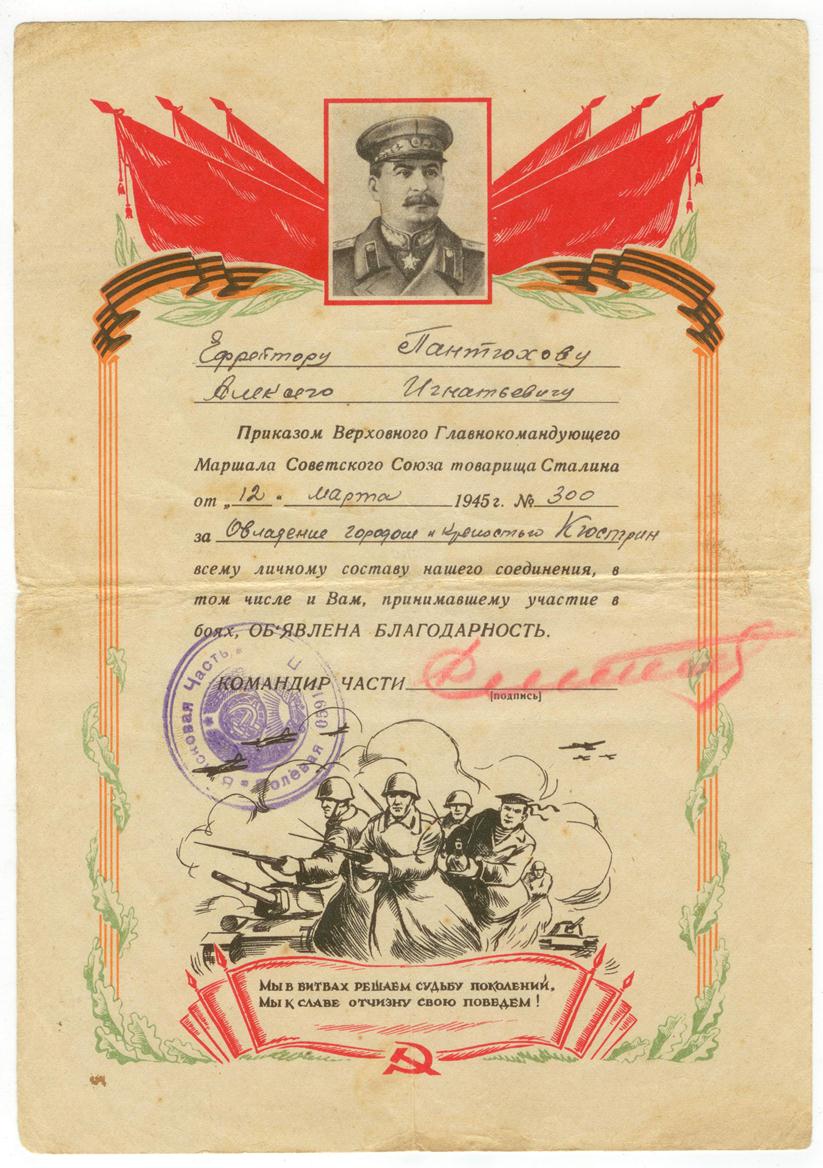 Ефрейтору Пантюхову
Алексего Игнатьевичу
Приказом Верховного Главнокомандующего
Маршала Советского Союза товарища Сталина
от „12“ марта 1945 г. № 300
за Овладение городом и крепостью Кюстрин
всему личному составу нашего соединения, в
том числе и Вам, принимавшему участие в
боях, ОБ'ЯВЛЕНА БЛАГОДАРНОСТЬ.
КОМАНДИР ЧАСТИ
[подпись]
Войсковая Часть
Полевая П
Мы в битвах решаем судьбу поколений,
Мы к славе отчизну свою поведем!